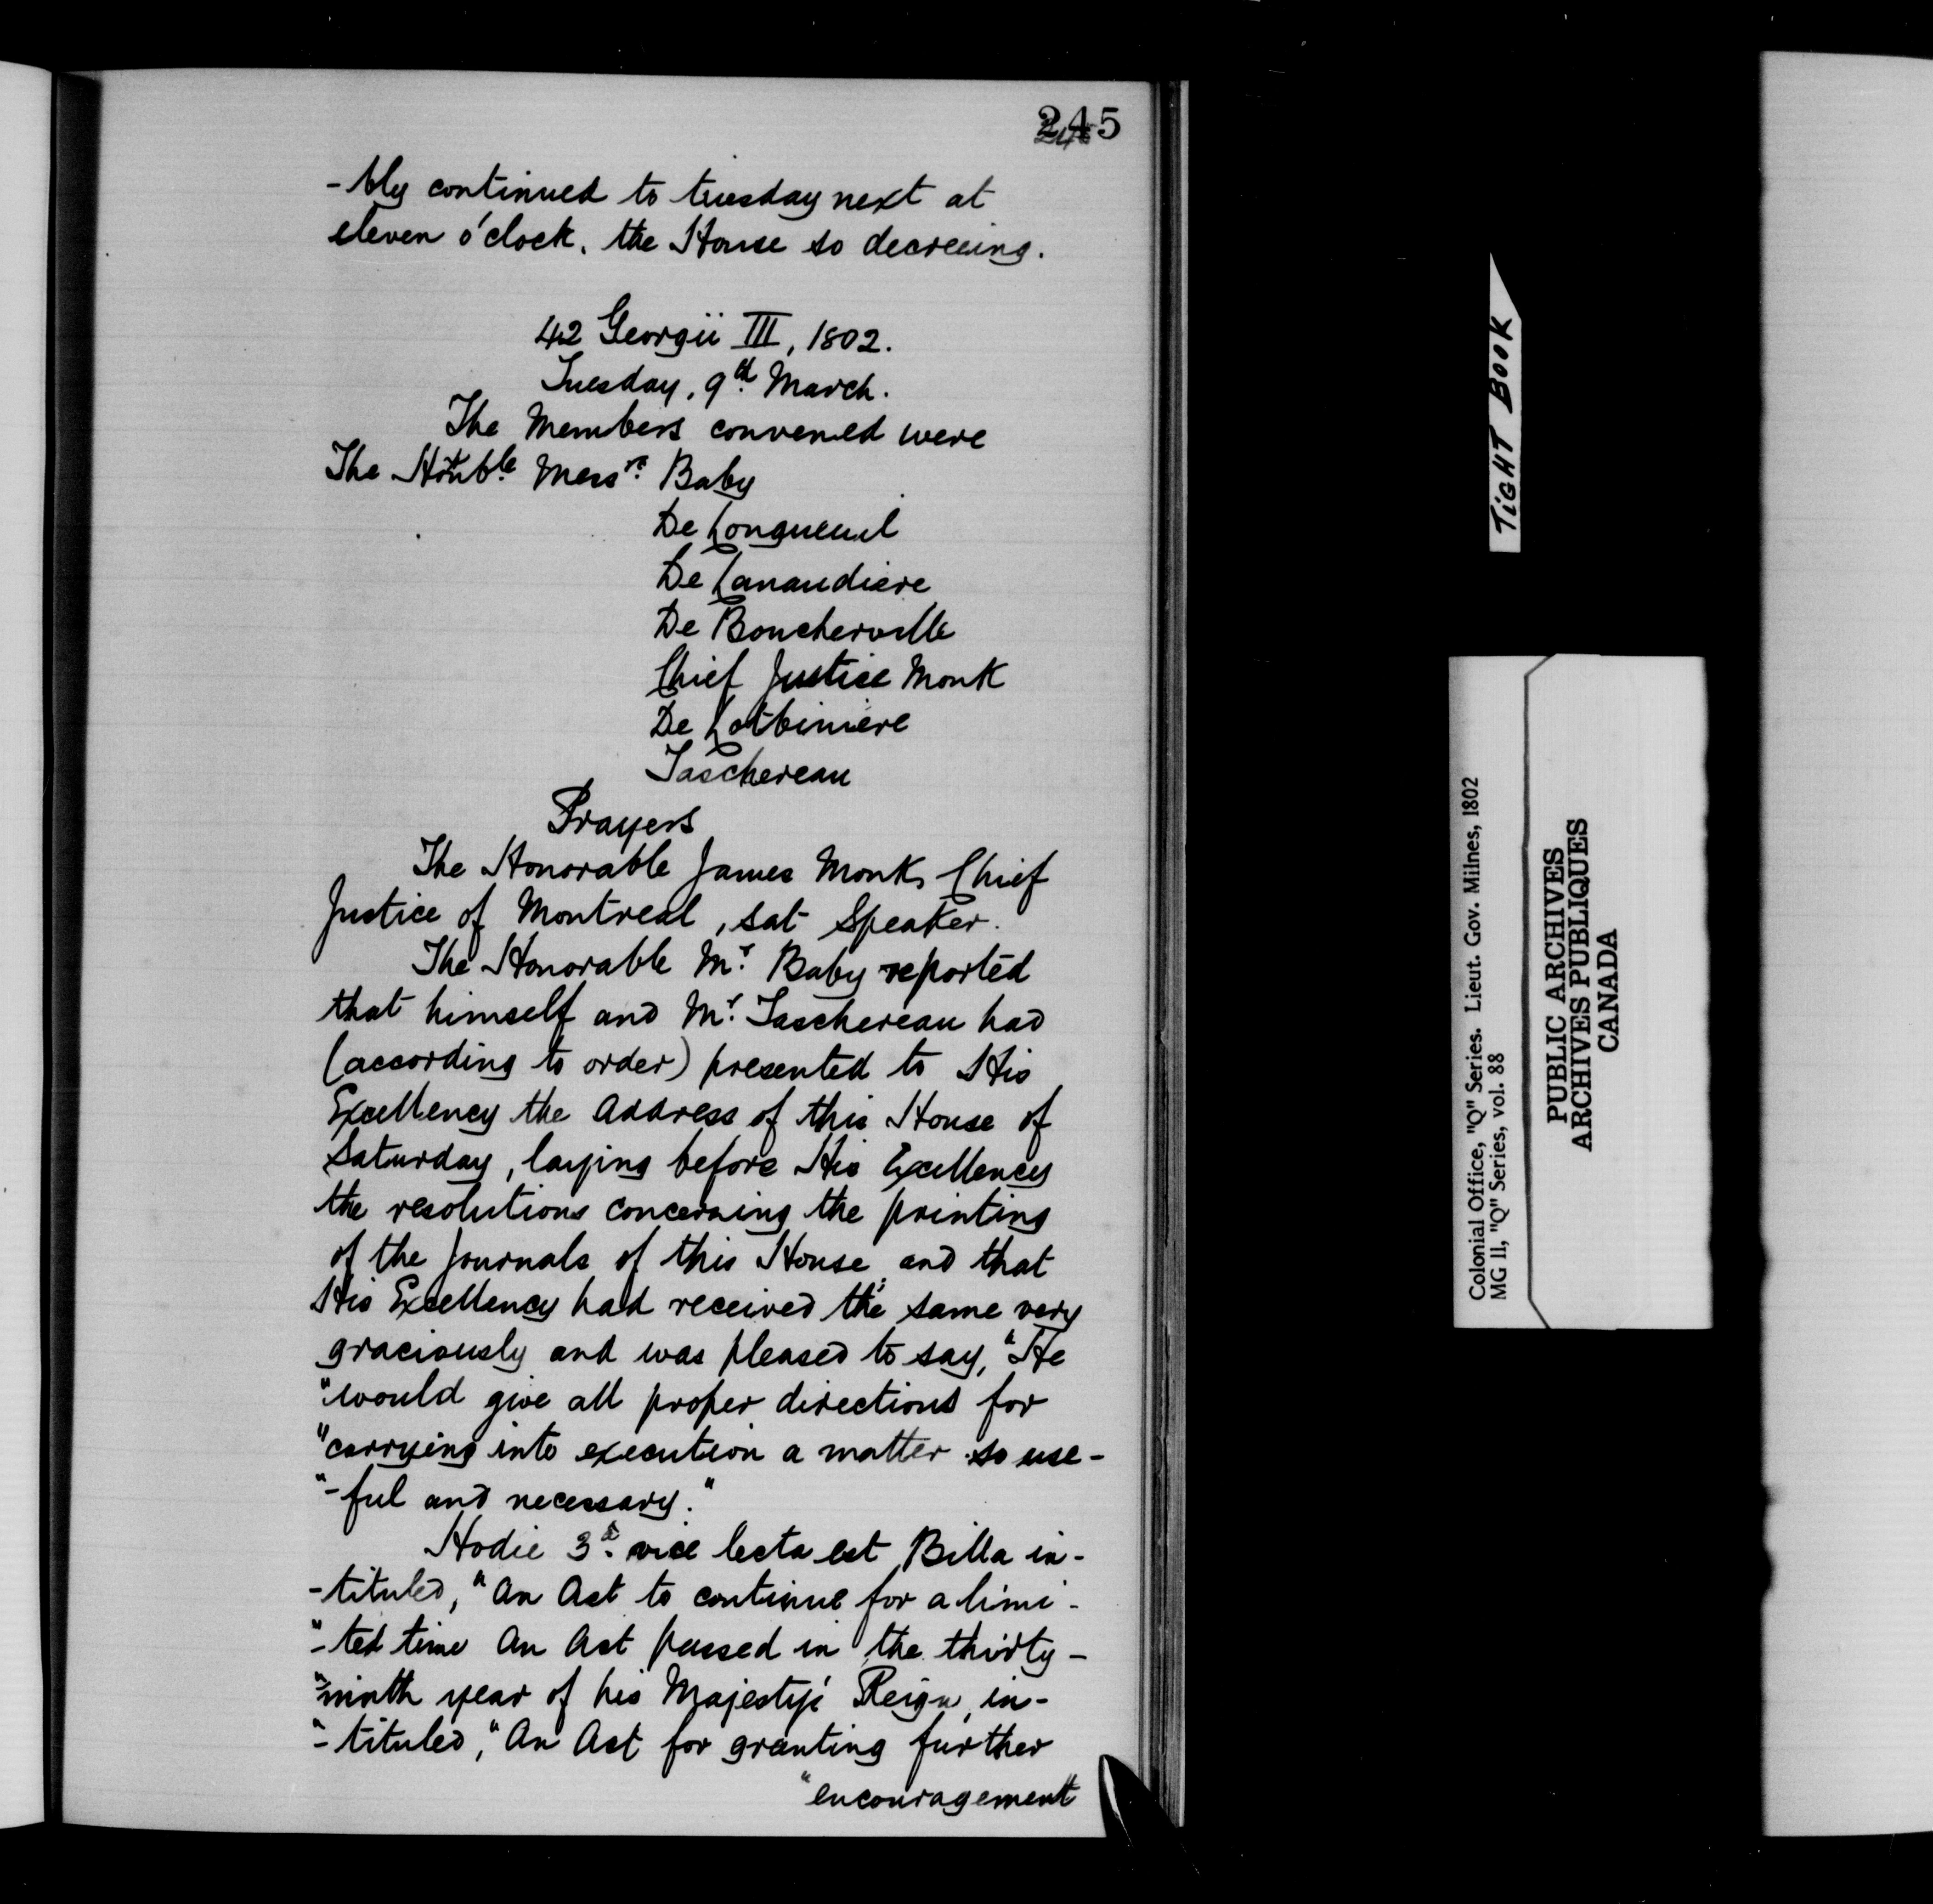 245
-bly continued to tuesday next at
eleven o'clock, the House so decreeing.
42 Georgii III, 1802.
Tuesday, 9th March.
The Members convened were
The Honble Messrs Baby
De Longueuil
De Lanaudiere
De Boucherville
Chief Justice Monk
De Lotbiniere
Taschereau
Prayers
The Honorable James Monk, Chief
Justice of Montreal, sat Speaker.
The Honorable Mr. Baby reported
that himself and Mr. Taschereau had
(according to order) presented to His
Excellency the Address of this House of
Saturday, laying before His Excellency
the resolutions concerning the printing
of the Journals of this House, and that
His Excellency had received the same very
graciously and was pleased to say, "He
"would give all proper directions for
"carrying into execution a matter so use-
"-ful and necessary."
Hodie 3a vice lecta est Billa in-
-tituled, "An Act to continue for a limi-
"-ted time An Act passed in the thirty-
"-ninth year of his Majesty's Reign, in-
"-tituled, "An Act for granting further
"encouragement
TIGHT BOOK
Colonial Office, "Q" Series. Lieut. Gov. Milnes, 1802
MG 11, "Q" Series, vol. 88
PUBLIC ARCHIVES
ARCHIVES PUBLIQUES
CANADA